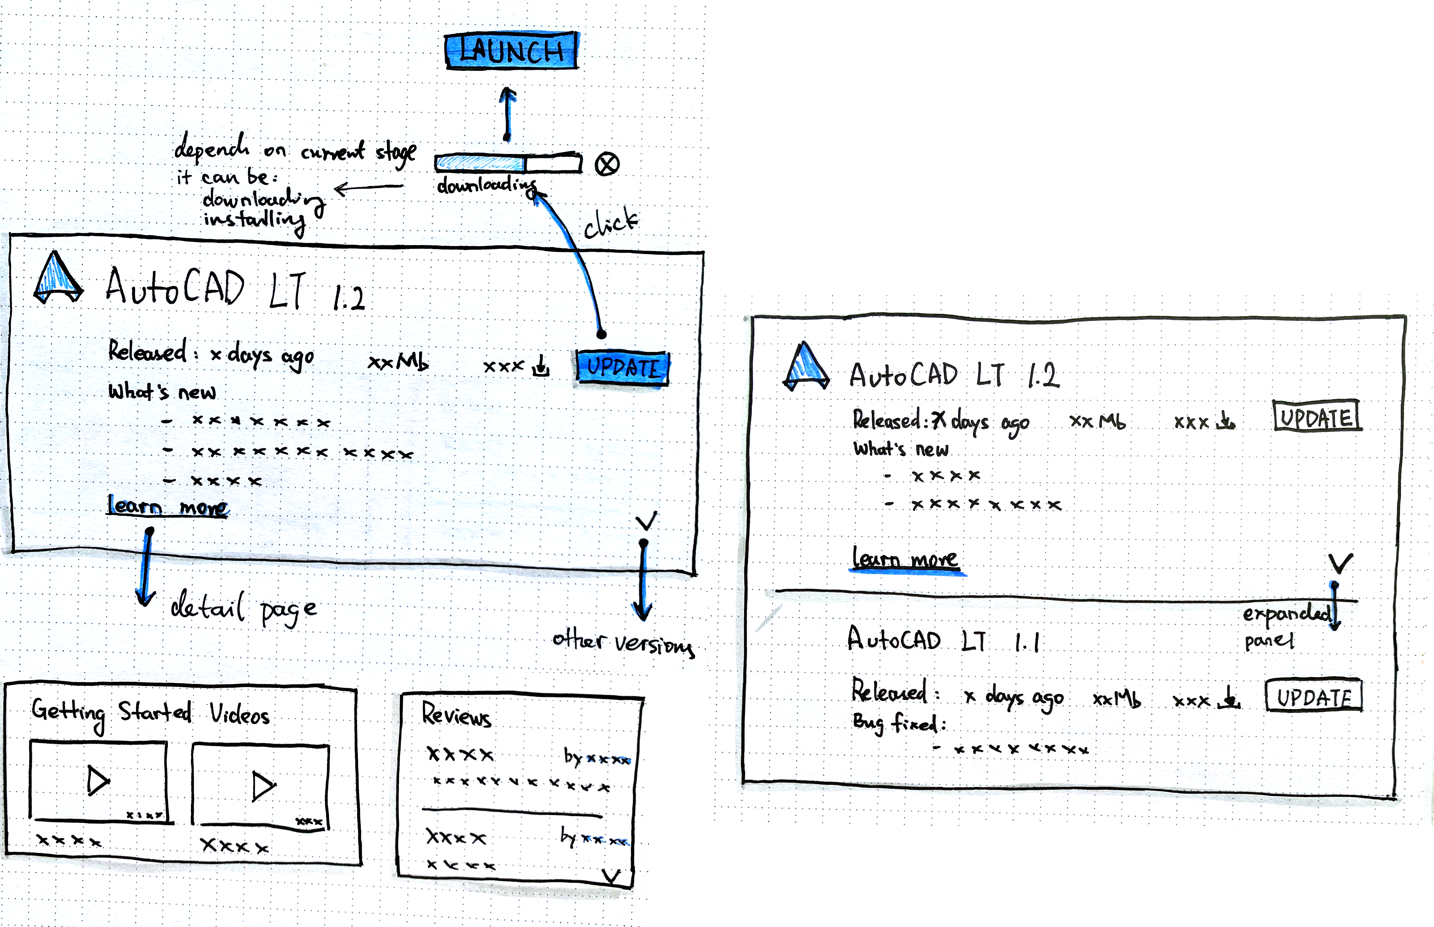 LAUNCH
depend on current stage
it can be:
downloading
installing
downloading
click
AutoCAD LT 1.2
Released: x days ago xxMb xxx UPDATE
What's new
- xx x x x x x
- xx x x x x x x x x x
- x x x x
learn more
detail page
other versions
Getting Started Videos
x x x x
x x x
x x x x
x x x x
Reviews
x x x x by x x x x
x x x x x x x x x x x x
x x x x by x x x x
x x x x
AutoCAD LT 1.2
Released: x days ago xx Mb xxx UPDATE
What's new
- x x x x
- x x x x x x x x
learn more
expanded
panel
AutoCAD LT 1.1
Released: x days ago xxMb xxx UPDATE
Bug fixed:
- x x x x x x x x